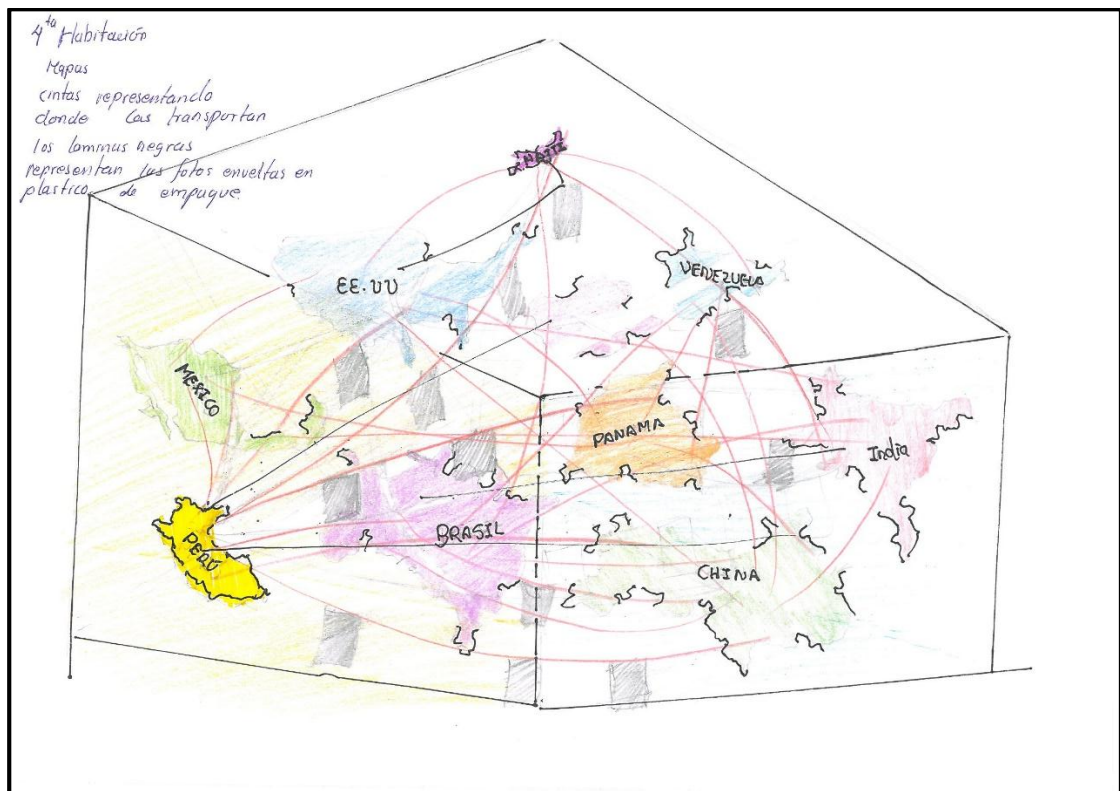 4ta Habitación
Mapas
cintas representando
donde las transportan
los laminas negras
representan las fotos envueltas en
plastico de empaque
HAITI
EE.UU
VENEZUELA
MEXICO
PANAMA
India
PERÚ
BRASIL
CHINA